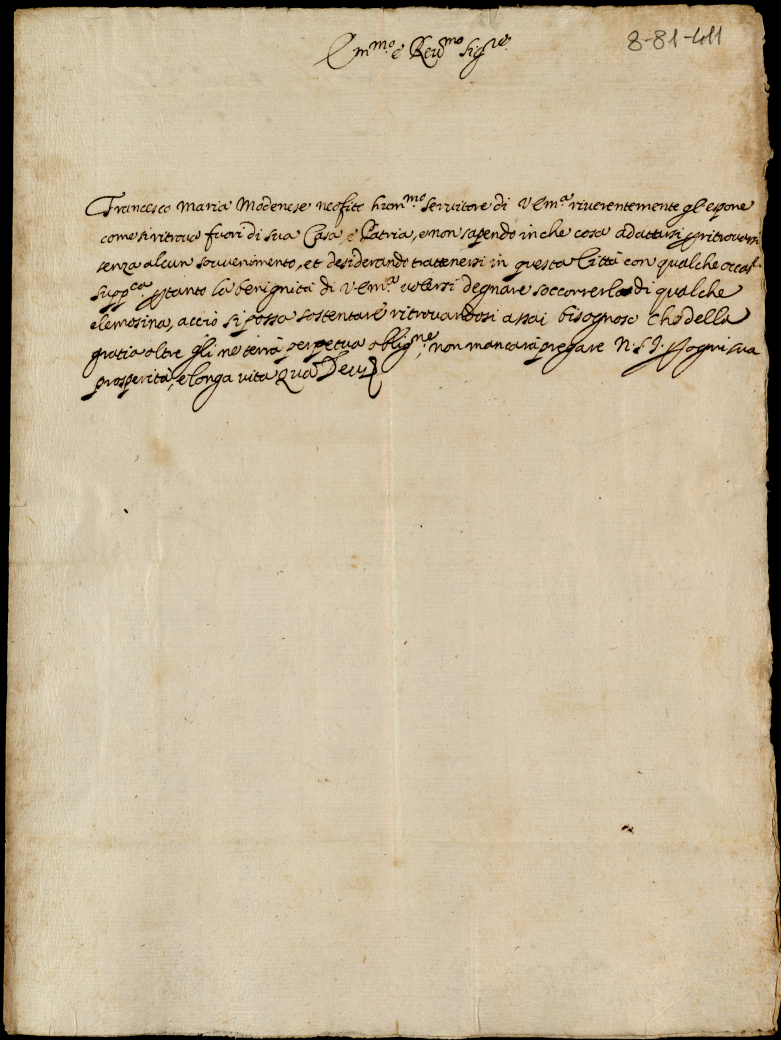 8-81-411
Em.mo e Reu.mo Sig.re
Francesco Maria Modenese neofito hum.mo seruitore di V Em.a riuerentemente gl'espone
come si ritroua fuori di sua Casa e Patria, e non sapendo in che cosa adattarsi p ritrouarsi
senza alcun souuenimento, et desiderando trattenersi in questa Città con qualche occas.e
supp.ca p tanto la benignità di V Em.a uolersi degnare soccorrerlo di qualche
elemosina, acciò si possa sostentare ritrouandosi assai bisognoso che della
gratia oltre gli ne terrà perpetua oblig.ne, non mancarà pregare N. S. I. p ogni sua
prosperità, e longa uita Qua Deus